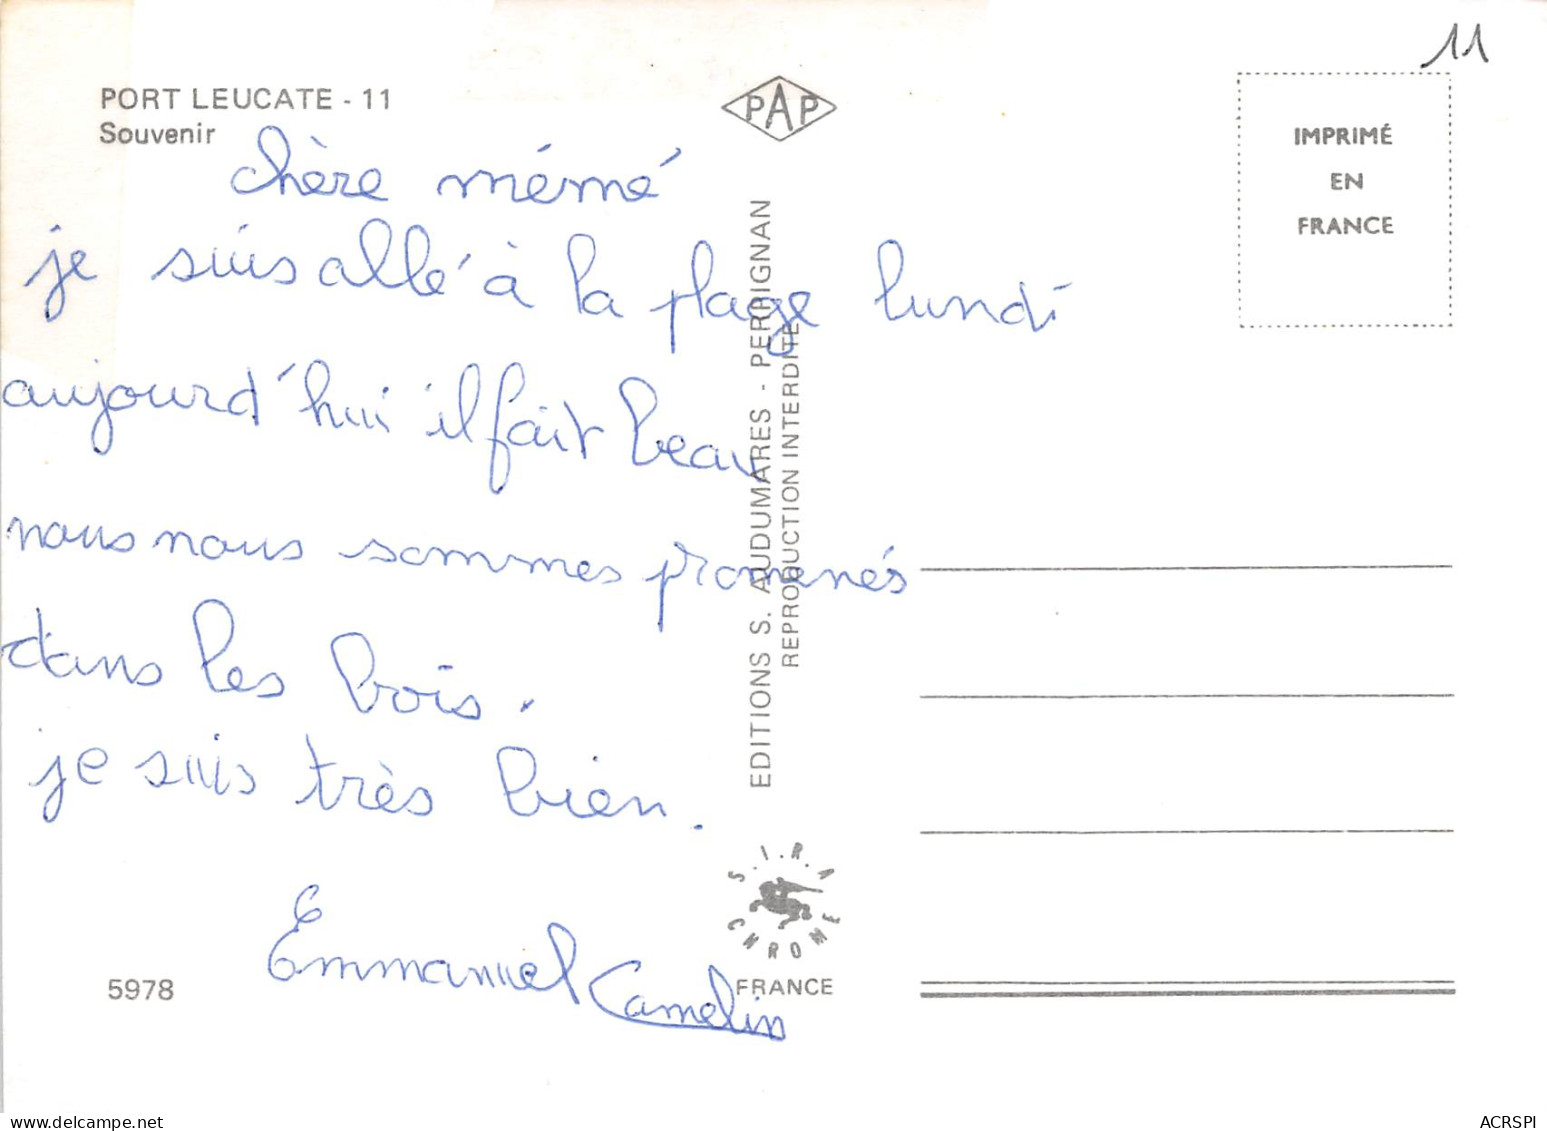 11
PORT LEUCATE - 11
Souvenir
PAP
IMPRIMÉ
EN
FRANCE
chère mémé
je suis allé à la plage lundi
aujourd'hui il fait beau
nous nous sommes promenés
dans les bois.
je suis très bien.
Emmanuel Camelin
EDITIONS S. AUDUMARES - PERPIGNAN
REPRODUCTION INTERDITE
S.I.R.A
CHROME
FRANCE
5978
delcampe.net
ACRSPI